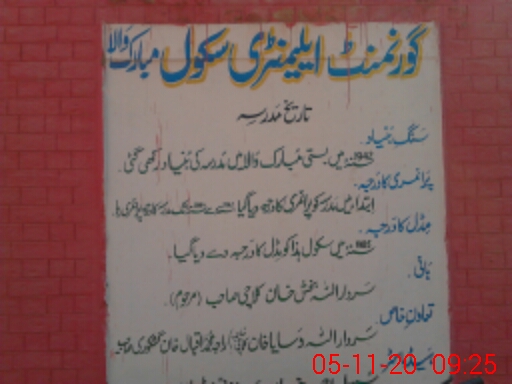 گورنمنٹ ایلیمنٹری سکول مبارک والا
تاریخ مدرسہ
سنگِ بنیاد۔
1942ء میں بستی مبارک والا میں مدرسہ کی بنیاد رکھی گئی۔
پرائمری کا درجہ۔
ابتداء میں مدرسہ کو پرائمری کا درجہ دیا گیا
مڈل کا درجہ۔
میں سکول ہذا کو مڈل کا درجہ دے دیا گیا۔
بانی۔
سردار اللہ بخش خان کلاچی صاحب (مرحوم)۔
تعاونِ خاص۔
سردار اللہ وسایا خان راجہ محمد اقبال خان
05-11-20 09:25